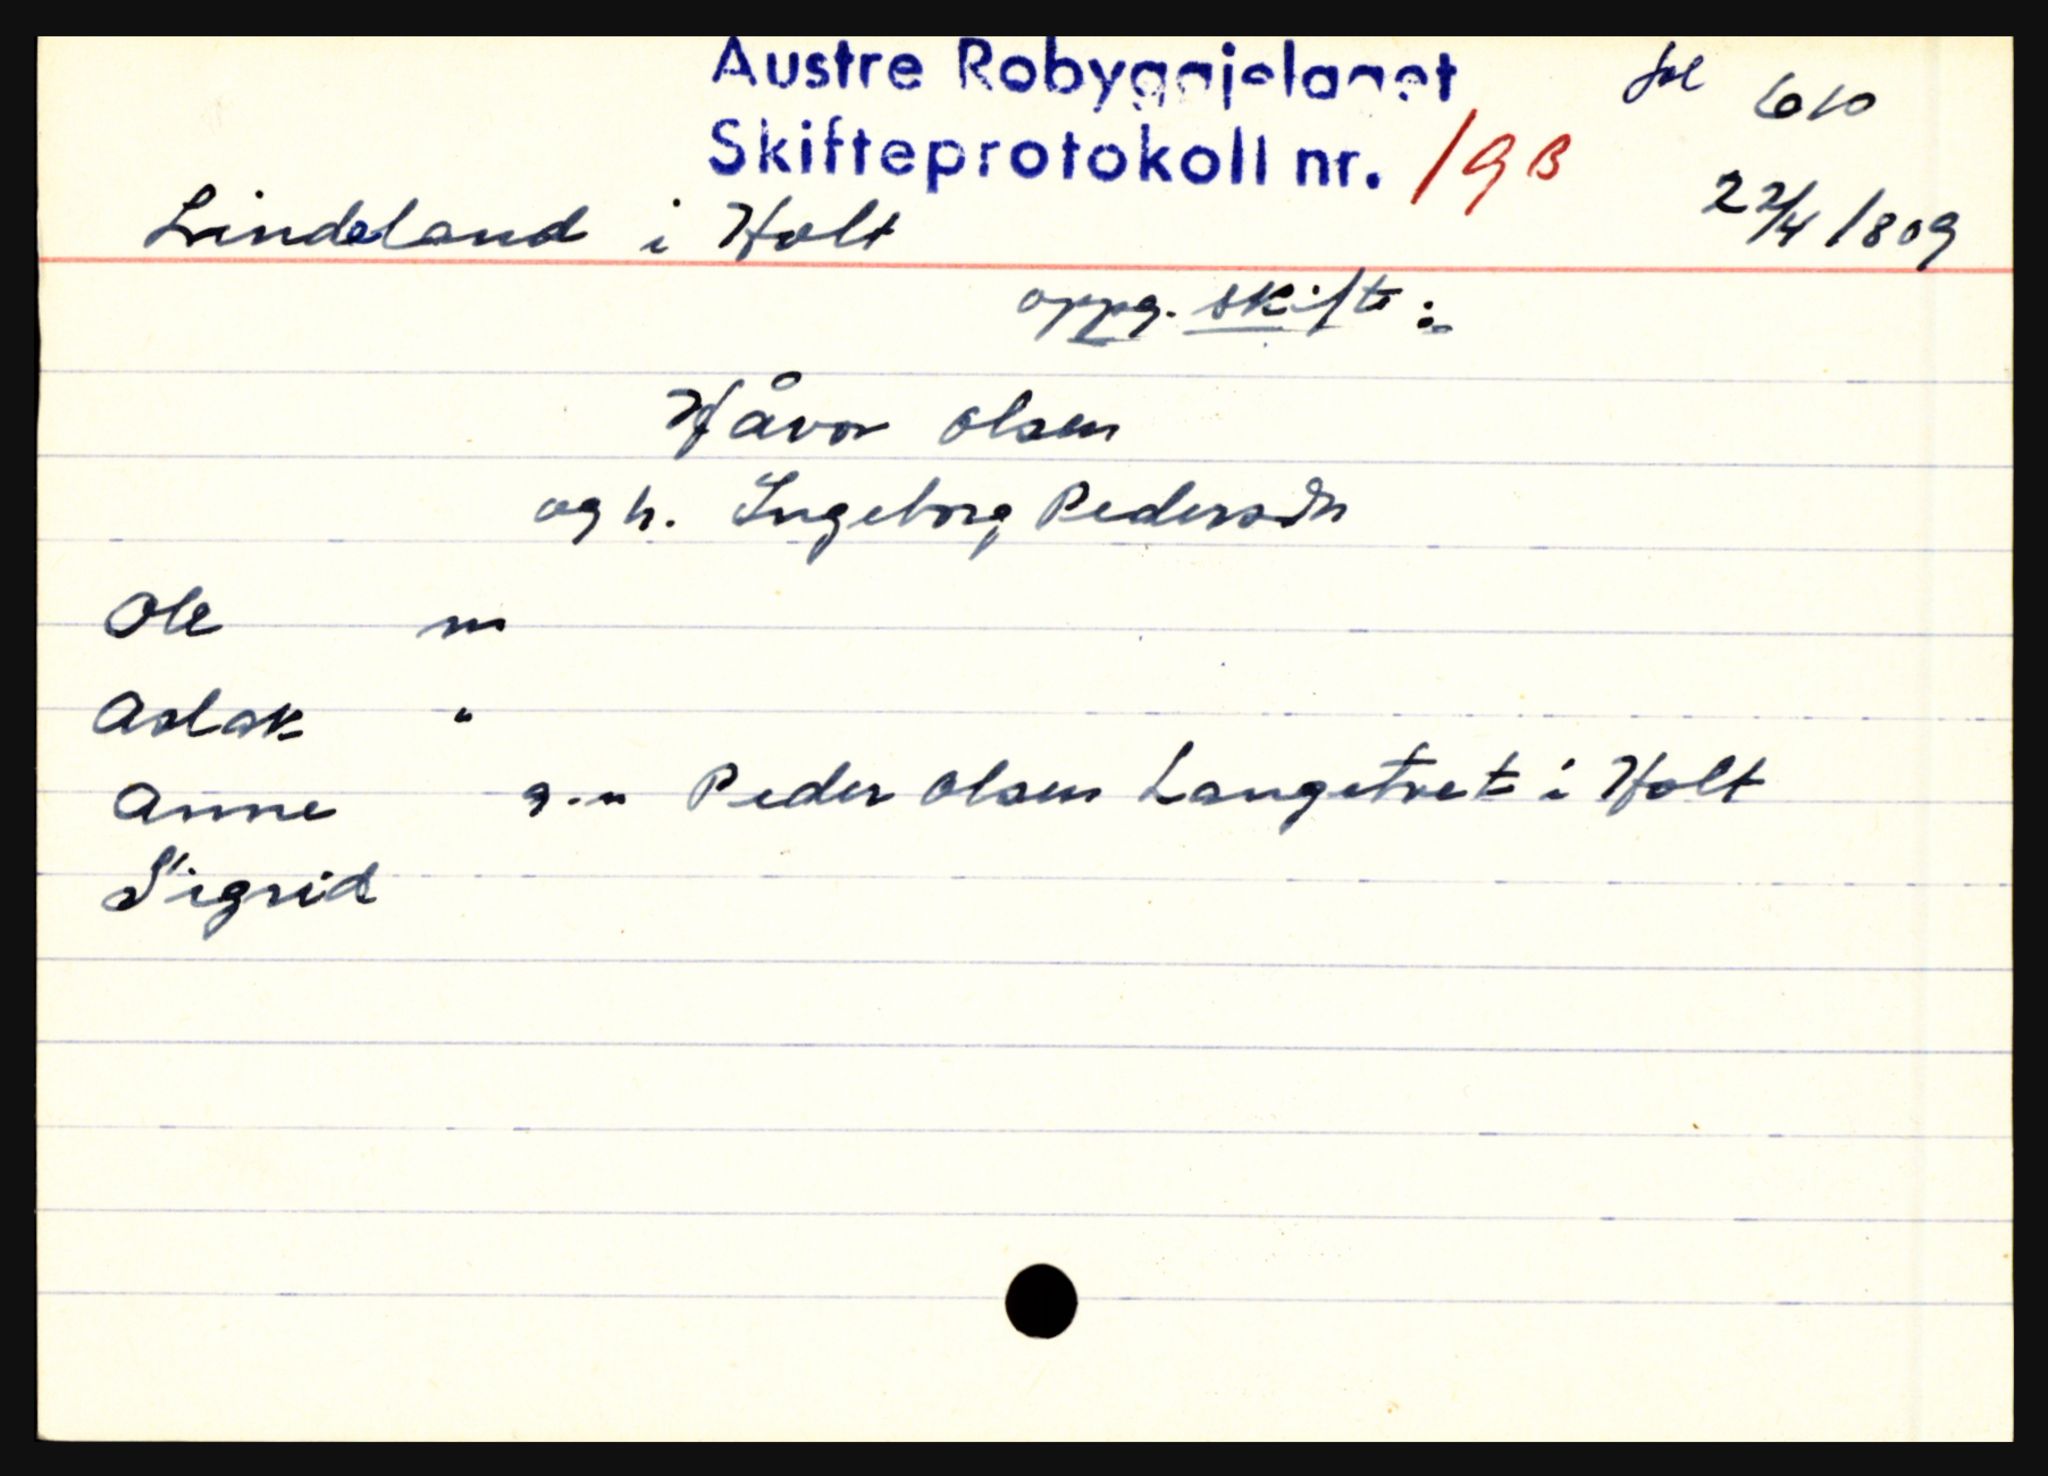 Austre Robyggjelaget fol 610
Skifteprotokoll nr. 19B
Lindeland i Holt 22/4 1809
oppg. skifte:
Håvor Olsen
og h. Ingeborg Pedersdtr
Ole m
Aslak "
Anne g.m Peder Olsen Langetvet i Holt
Sigrid